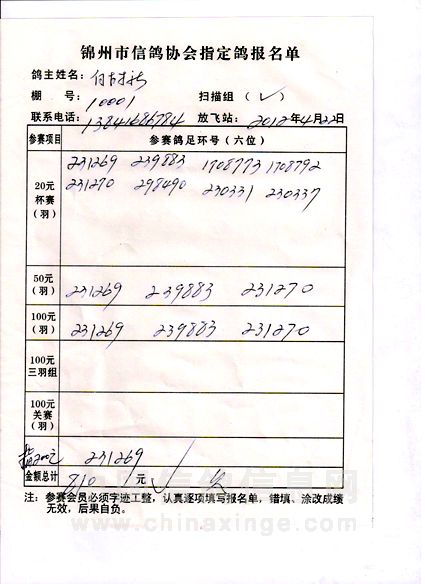 锦州市信鸽协会指定鸽报名单
鸽主姓名:
棚 号: 10001 扫描组 (✓)
联系电话: 13841685794 放飞站: 2012年4月22日
参赛项目 参赛鸽足环号（六位）
20元 杯赛 (羽) 231269 239883 1708773 1708792
231270 298490 230331 230337
50元 (羽) 231269 239883 231270
100元 (羽) 231269 239883 231270
100元 三羽组
100元 关赛 (羽)
200元 231269
金额总计 810 元 ✓
注：参赛会员必须字迹工整，认真逐项填写报名单，错填、涂改成绩
无效，后果自负。
www.chinaxinge.com